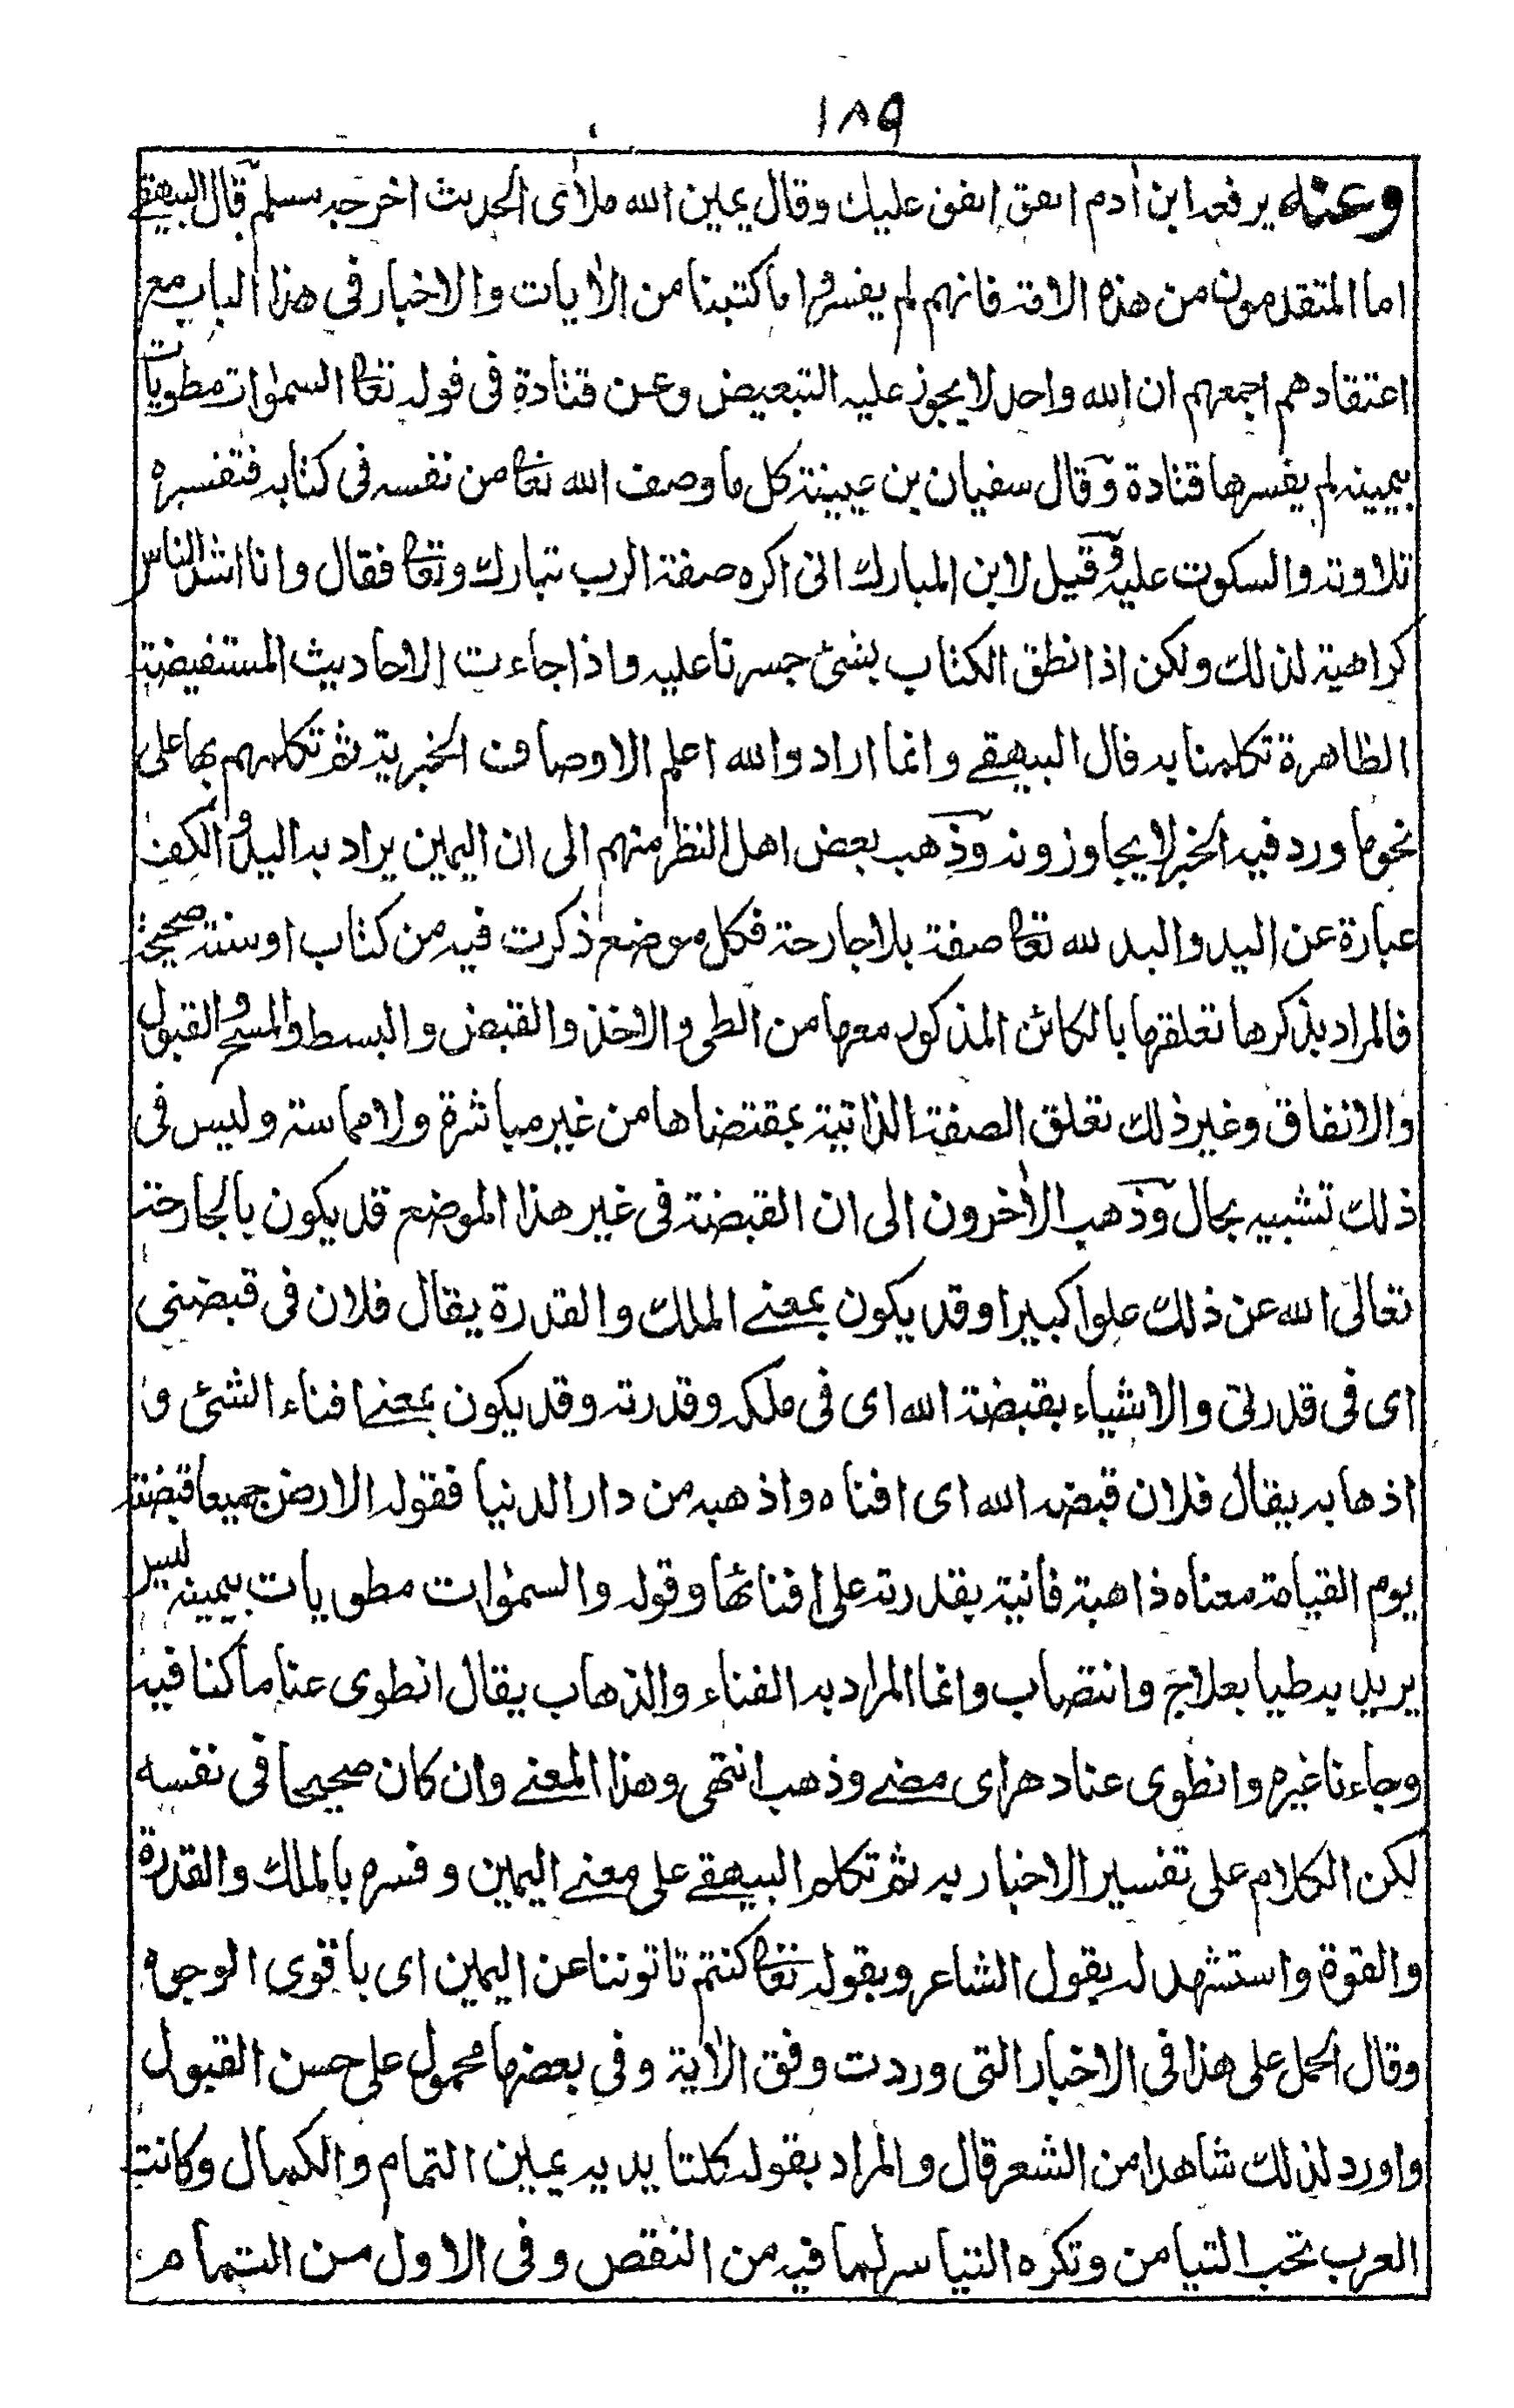 ١٨٩
وعنه يرفعه ابن اٰدم انفق انفق عليك وقال يمين الله ملأى الحديث اخرجه مسلم قال البيهقے
اما المتقدمون من هذه الامة فانهم لم يفسروا ما كتبنا من الاٰيات والاخبار فى هذا الباب مع
اعتقادهم اجمعهم ان الله واحد لا يجوز عليه التبعيض وعن قتادة فى قوله تعا السمٰوات مطويات
بيمينه لم يفسرها قتادة وقال سفيان بن عيينة كل ما وصف الله تعا من نفسه فى كتابه فتفسيره
تلاوته والسكوت عليه وقيل لابن المبارك انى اكره صفة الرب تبارك وتعا فقال وانا اشد الناس
كراهية لذلك ولكن اذا نطق الكتاب بشئ جسرنا عليه واذا جاءت الاحاديث المستفيضة
الظاهرة تكلمنا به قال البيهقے وانما اراد والله اعلم الاوصاف الخبرية ثم تكلمهم بها على
نحو ما ورد فيه الخبر لا يجاوزونه وذهب بعض اهل النظر منهم الى ان اليمين يراد به اليد والكف
عبارة عن اليد واليد لله تعا صفة بلا جارحة فكل موضع ذكرت فيه من كتاب او سنة صحيحة
فالمراد بذكرها تعلقها بالكائن المذكور معها من الطى والاخذ والقبض والبسط والمسح والقبول
والانفاق وغير ذلك تعلق الصفة الذاتية بمقتضاها من غير مباشرة ولا مماسة وليس فى
ذلك تشبيه بحال وذهب الاٰخرون الى ان القبضة فى غير هذا الموضع قد يكون بالجارحة
تعالى الله عن ذلك علوا كبيرا وقد يكون بمعنے الملك والقدرة يقال فلان فى قبضتى
اى فى قدرتى والاشياء بقبضة الله اى فى ملكه وقدرته وقد يكون بمعنے افناء الشئ و
اذهابه يقال فلان قبضه الله اى افناه واذهبه من دار الدنيا فقوله الارض جميعا قبضته
يوم القيامة معناه ذاهبة فانية بقدرته على افنائها وقوله والسمٰوات مطويات بيمينه ليس
يريد به طيا بعلاج وانتصاب وانما المراد به الفناء والذهاب يقال انطوى عنا ما كنا فيه
وجاءنا غيره وانطوى عنا دهر اى مضے وذهب انتهى وهذا المعنے وان كان صحيحا فى نفسه
لكن الكلام على تفسير الاخبار به ثم تكلم البيهقے على معنے اليمين وفسره بالملك والقدرة
والقوة واستشهد له بقول الشاعر وبقوله تعا كنتم تاتوننا عن اليمين اى باقوى الوجوه
وقال الحمل على هذا فى الاخبار التى وردت وفق الاٰية وفى بعضها محمول على حسن القبول
واورد لذلك شاهدا من الشعر قال والمراد بقوله كلتا يديه يمين التمام والكمال وكانت
العرب تحب التيامن وتكره التياسر لما فيه من النقص وفى الاول من التمام